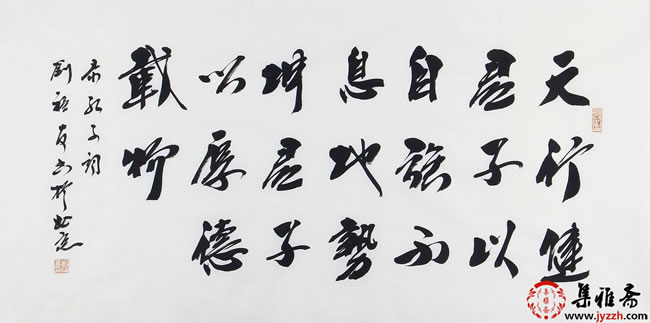 天行健
君子以
自強不
息地勢
坤君子
以厚德
載物
孔子詞
劉 書於北京
集雅斋
www.jyzzh.com